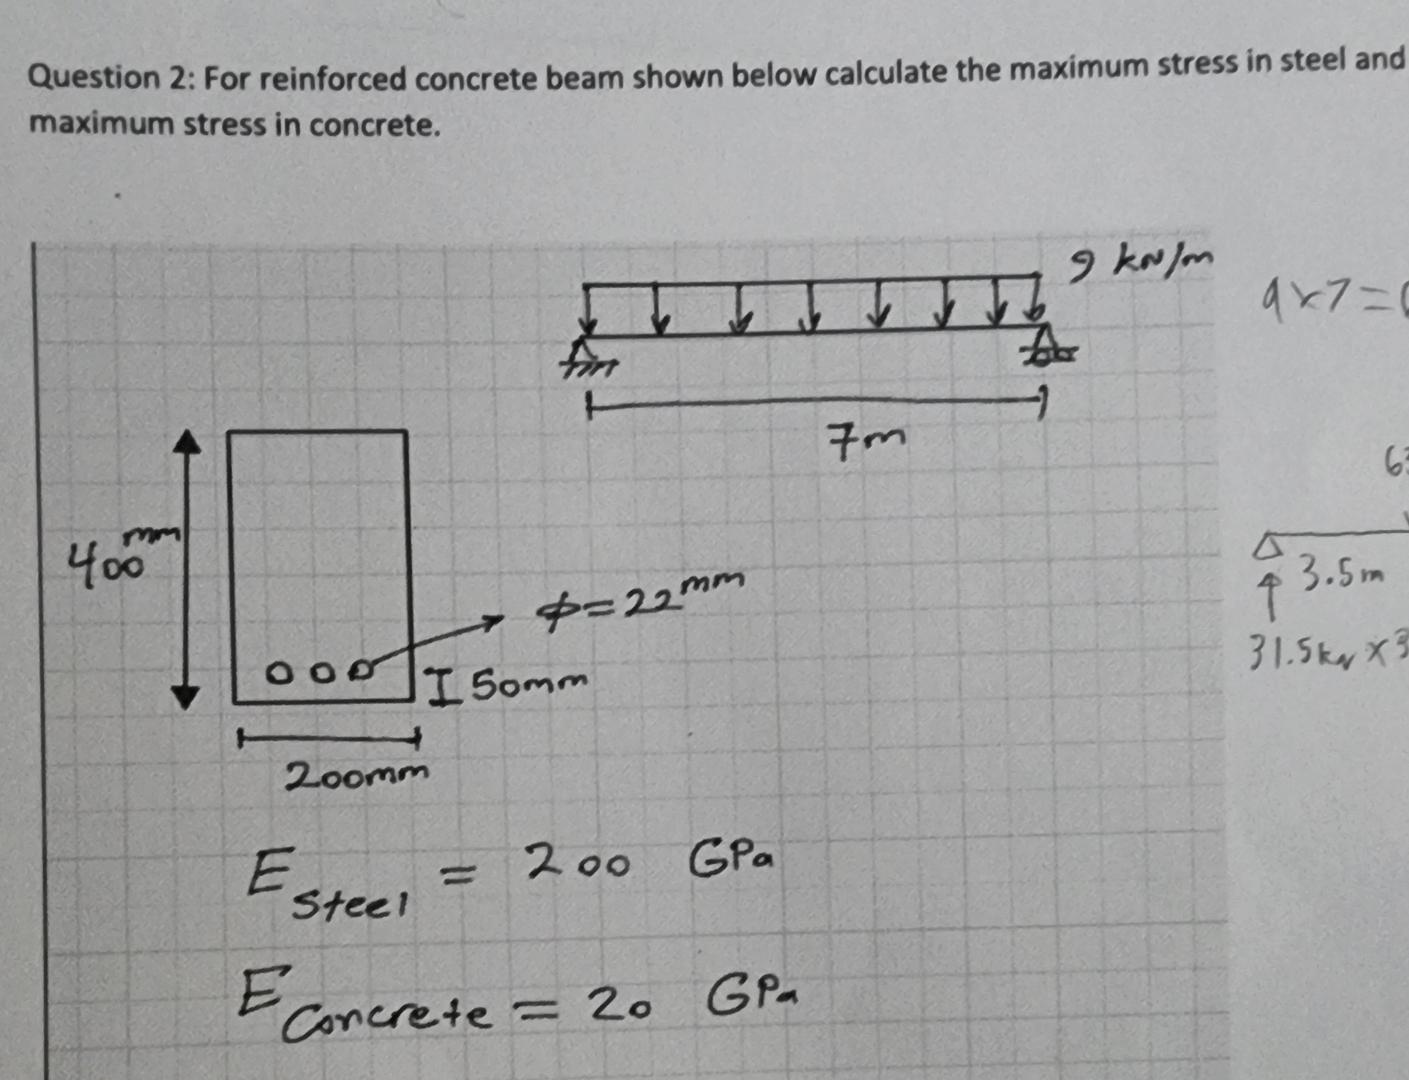 Question 2: For reinforced concrete beam shown below calculate the maximum stress in steel and
maximum stress in concrete.
9 kN/m
9x7=
7m
400mm
63
3.5m
ϕ=22mm
31.5kN x3
50mm
200mm
Esteel = 200 GPa
Econcrete = 20 GPa